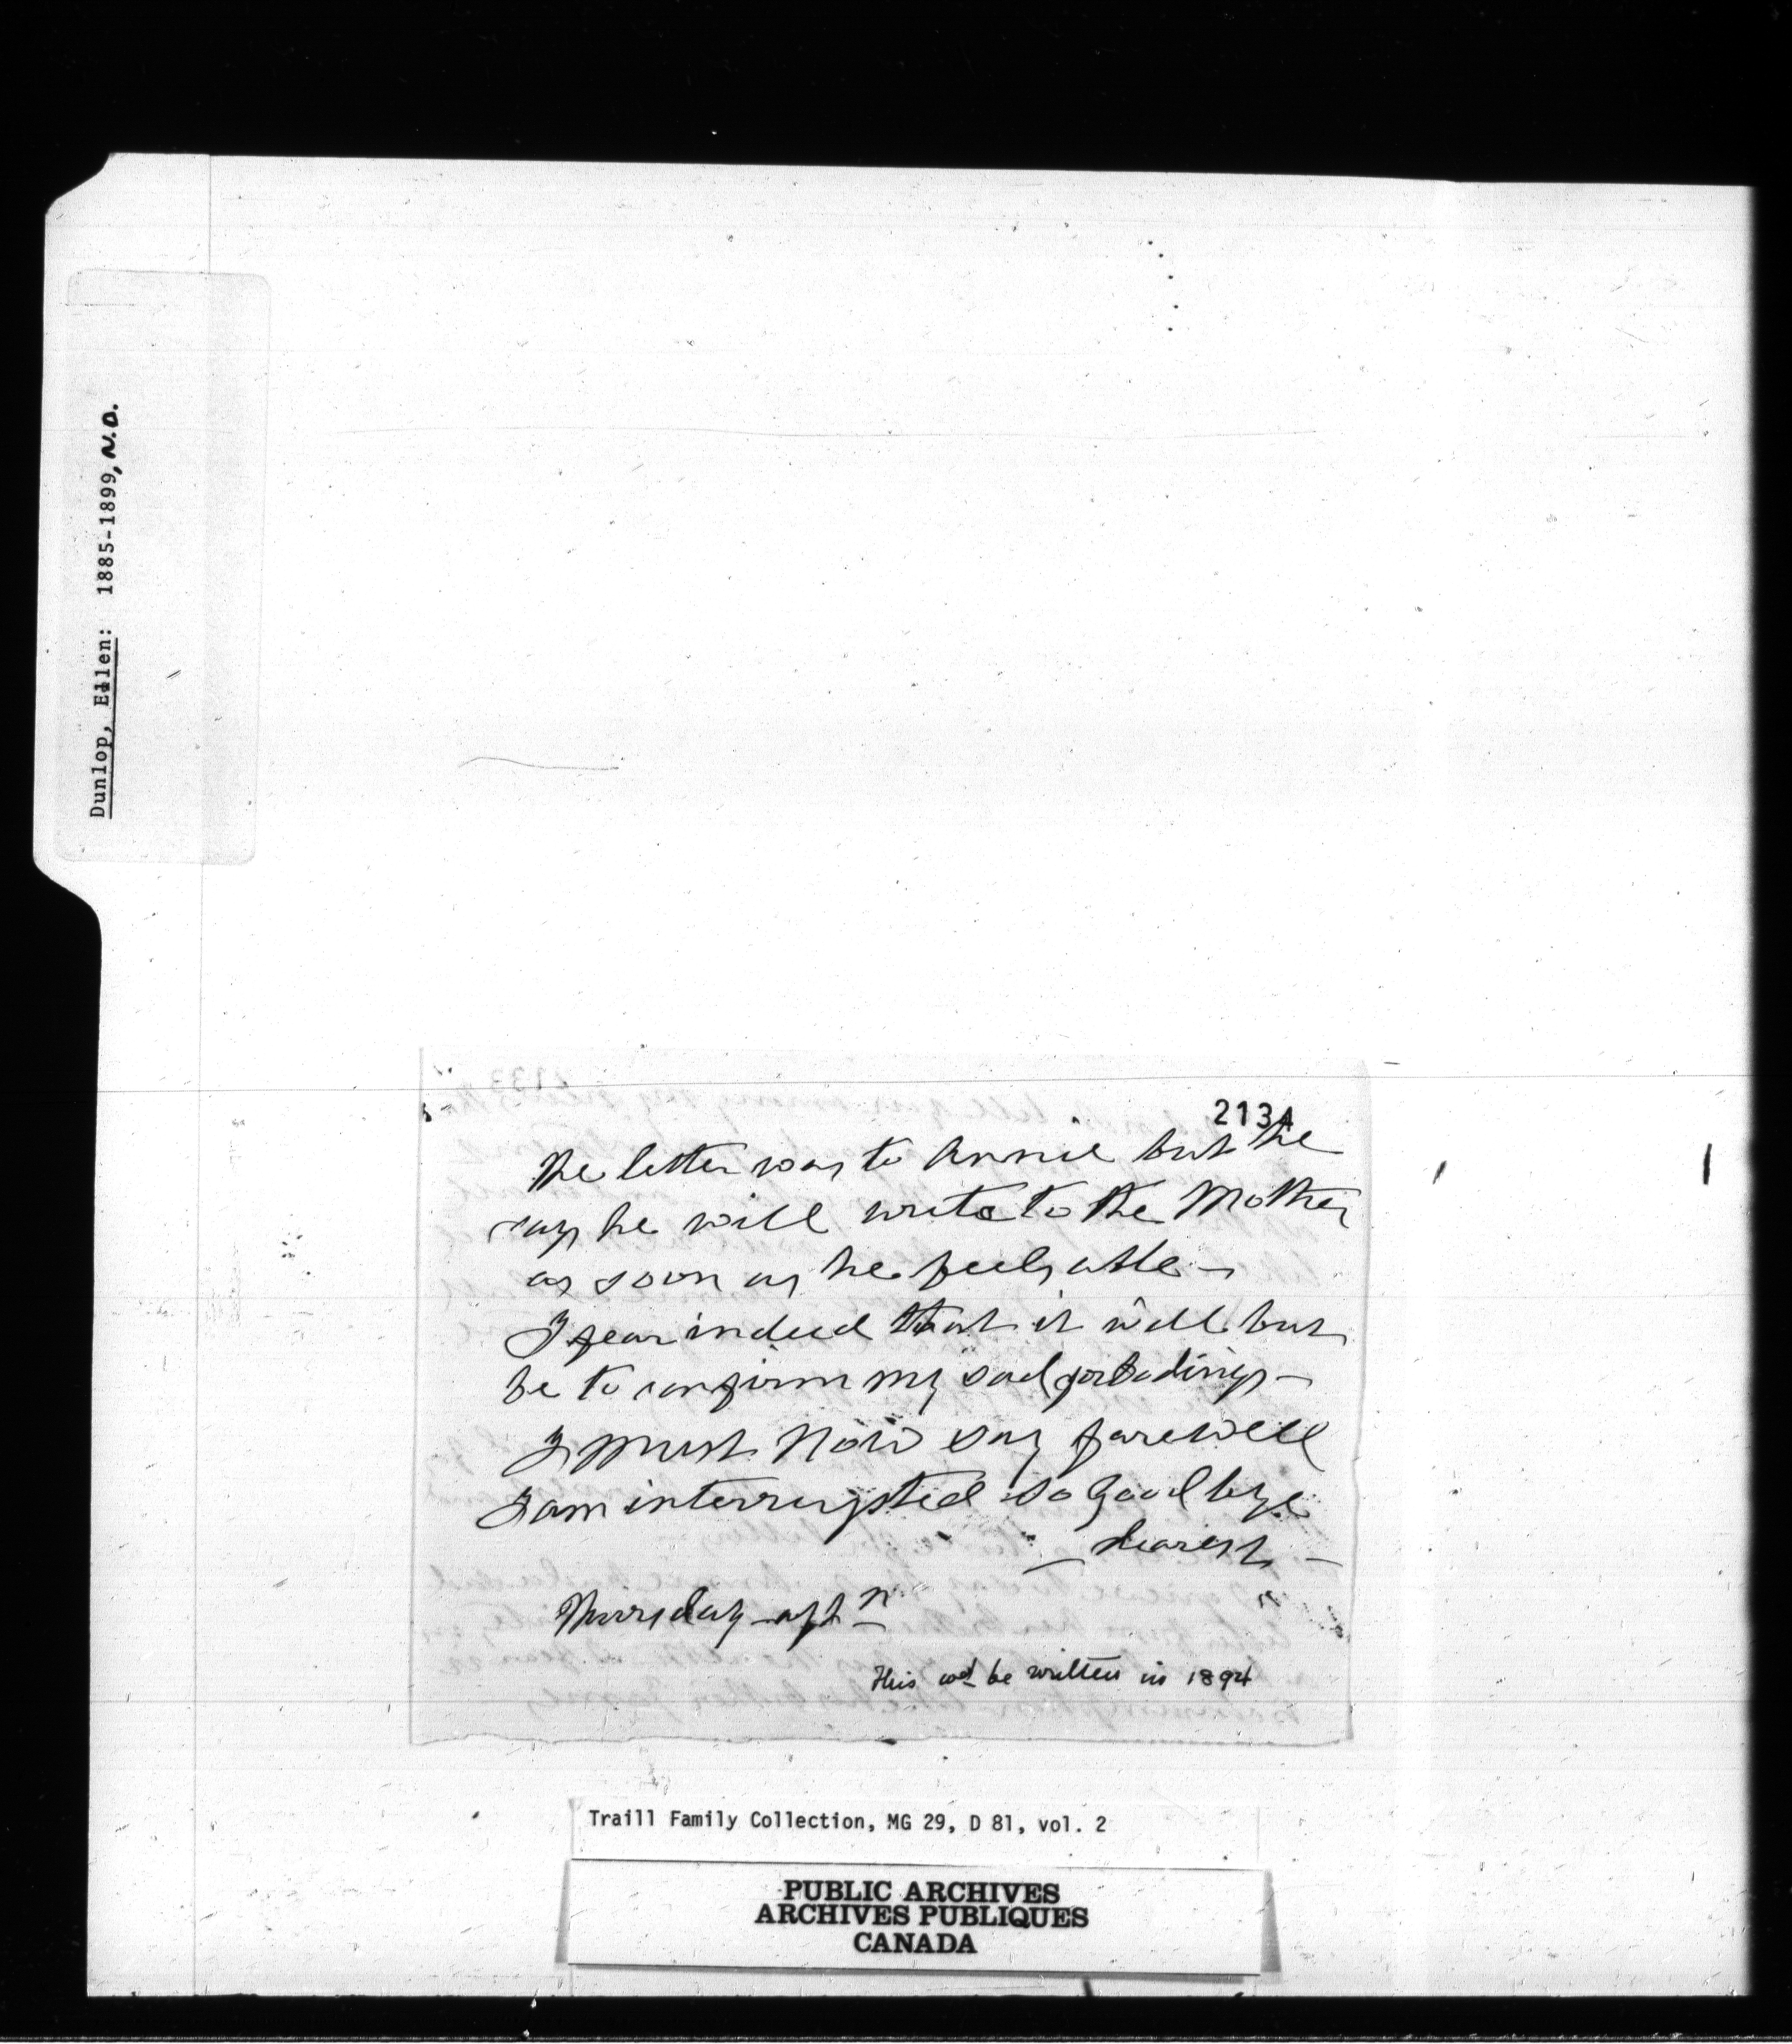 Dunlop, Ellen: 1885-1899, N.D.
2134
The letter was to Annie but he
says he will write to the Mother
as soon as he feels able —
I fear indeed that it will but
be to confirm my sad forbodings —
I must now say farewell
I am interrupted so Good bye
— dearest —
Thursday aftn
This wd be written in 1894
Traill Family Collection, MG 29, D 81, vol. 2
PUBLIC ARCHIVES
ARCHIVES PUBLIQUES
CANADA